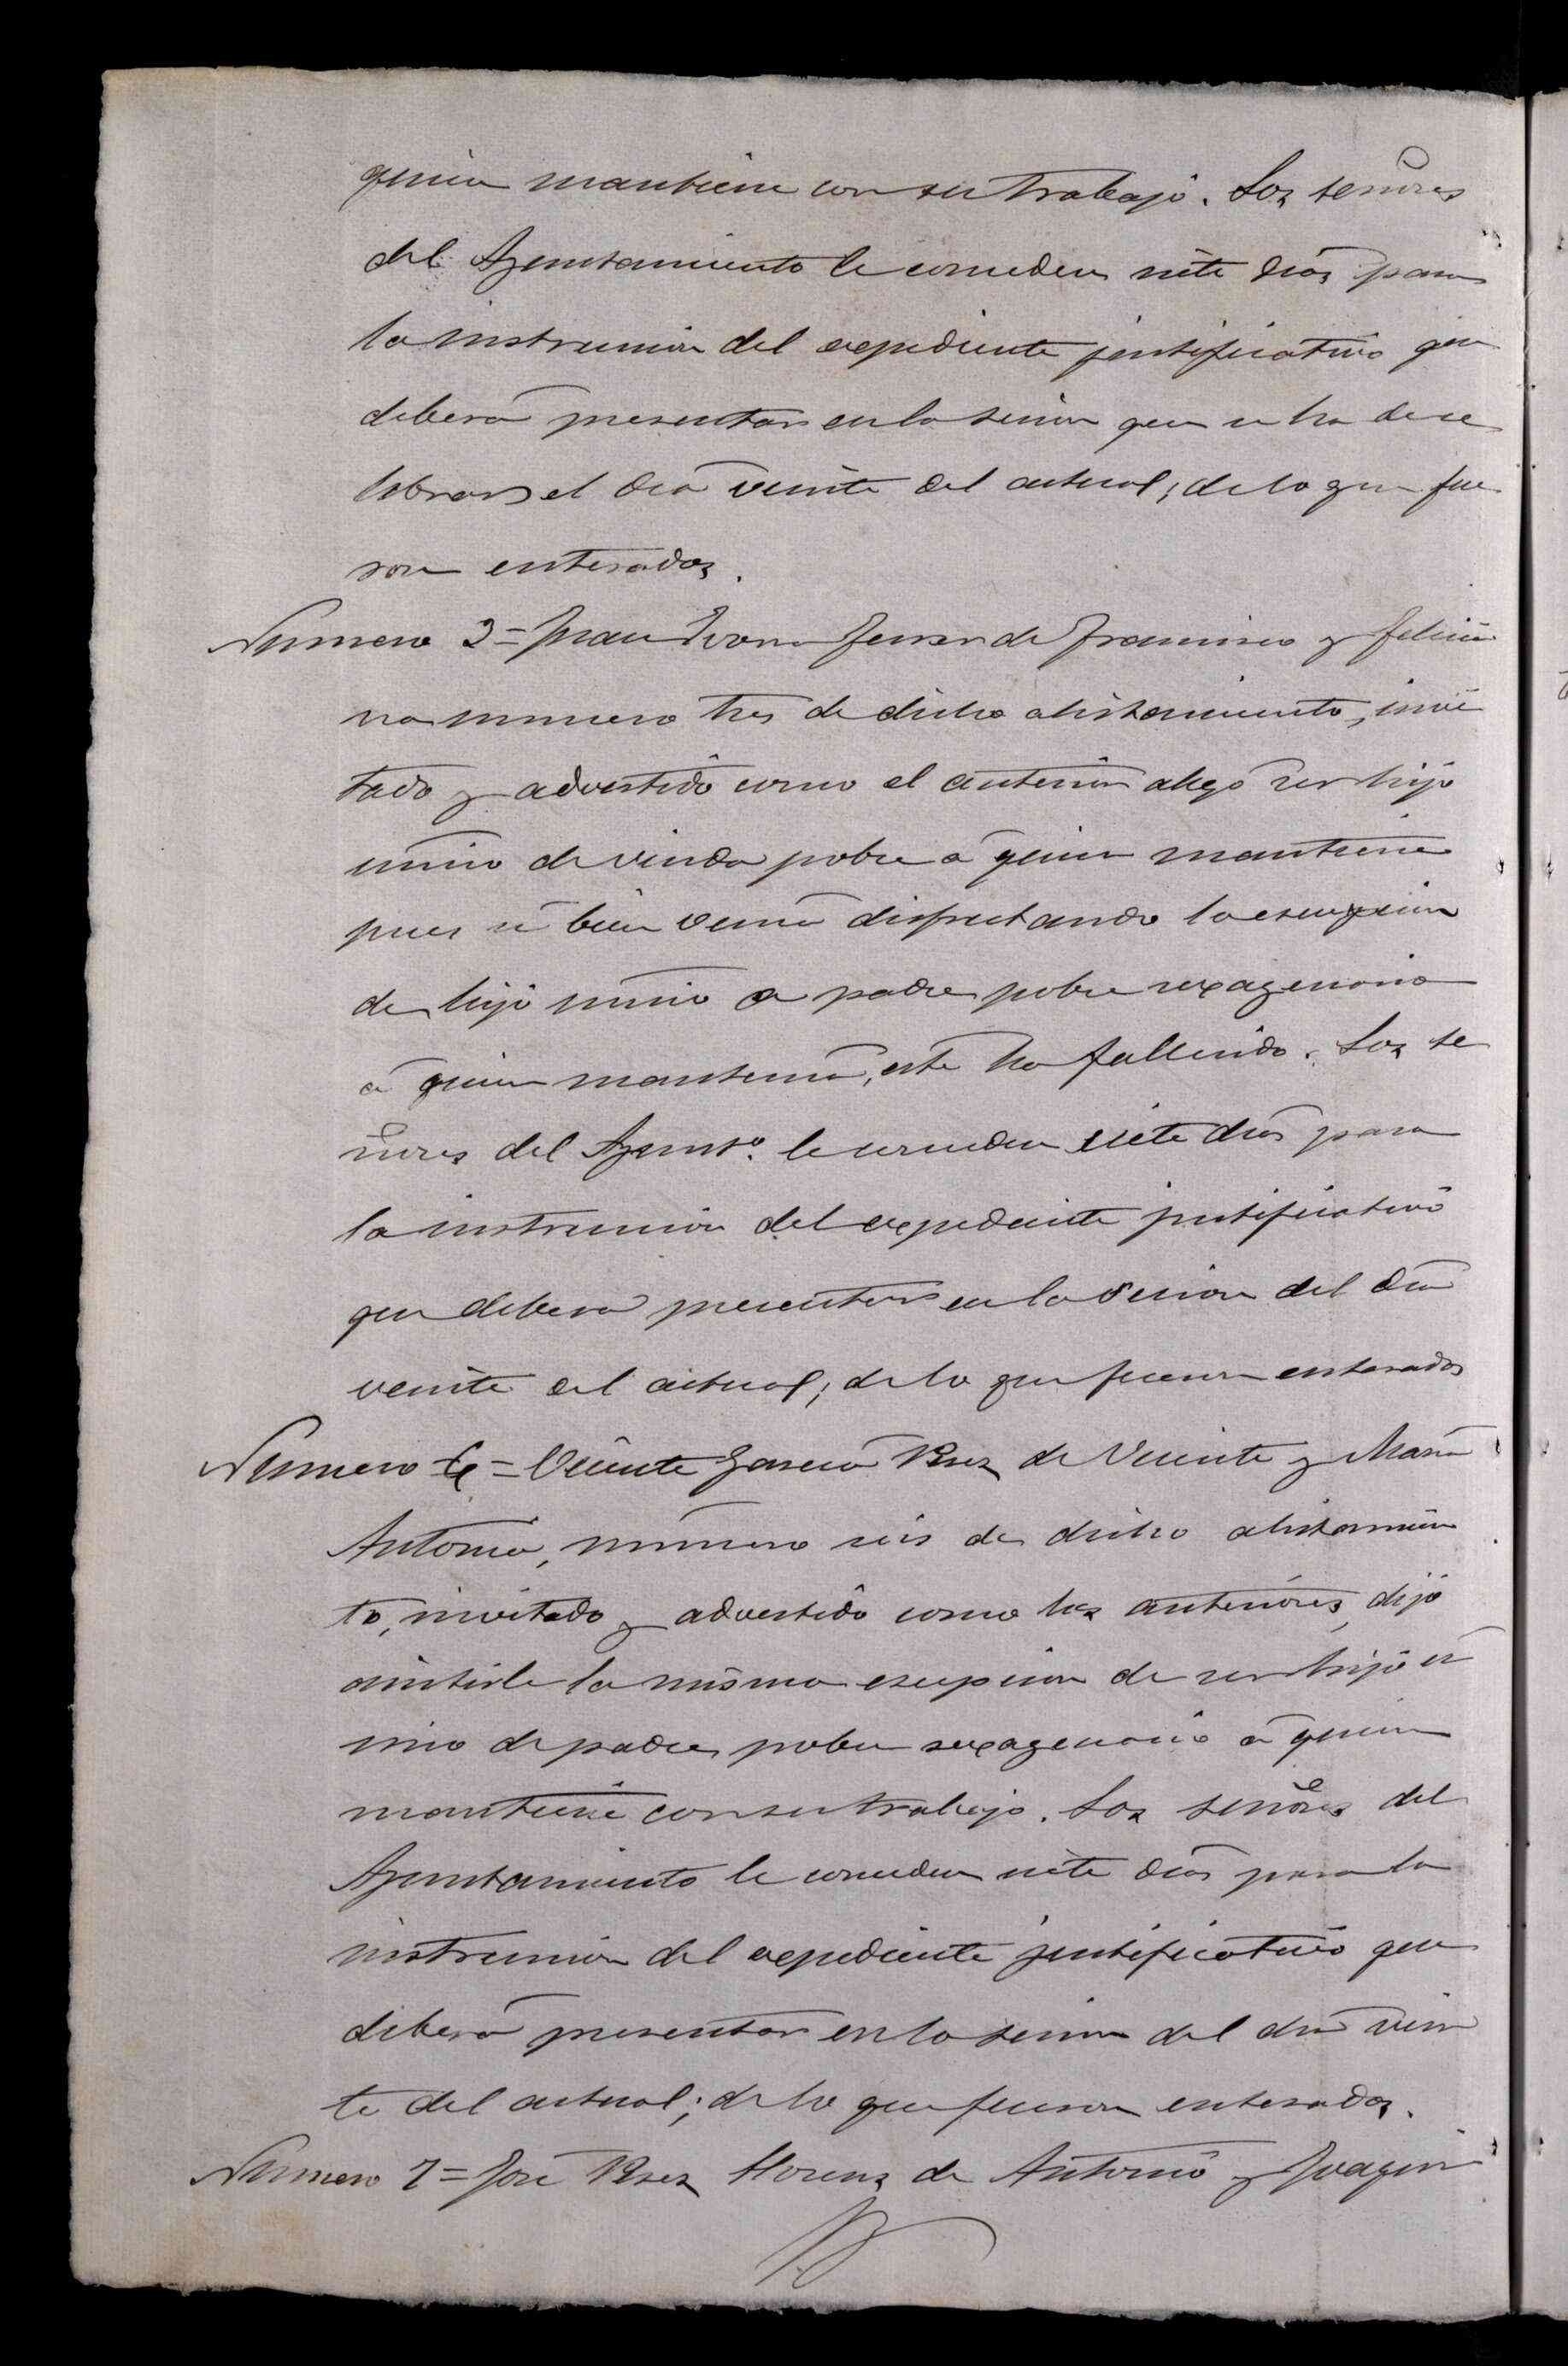 quien mantiene con su trabajo. Los señores
del Ayuntamiento le conceden siete dias para
la instrucción del expediente justificativo que
deberá presentar en la sesion que se ha de ce
lebrar el dia veinte del actual; de lo que fue
ron enterados.
Numero 3 = Juan Ferrer de Francisco y Felicia
na numero tres de dicho alistamiento, invi
tado y advertido como el anterior alegó ser hijo
único de viuda pobre á quien mantiene
pues si bien venia disfrutando la escepcion
de hijo unico de padre pobre sexagenario
á quien mantenia, este ha fallecido. Los se
ñores del Ayunto. le conceden siete dias para
la instruccion del expediente justificativo
que deberá presentar en la sesion del dia
veinte del actual; de lo que fueron enterados
Numero 6 = Vicente Garcia de Vicente y Maria
Antonia, número seis de dicho alistamien
to, invitado y advertido como los anteriores, dijo
asistirle la misma escepcion de ser hijo ú
nico de padre pobre sexagenario á quien
mantiene con su trabajo. Los señores del
Ayuntamiento le conceden siete dias para la
instruccion del expediente justificativo que
deberá presentar en la sesion del dia vein
te del actual; de lo que fueron enterados.
Numero 7 = José Llorens de Antonio y Joaquin